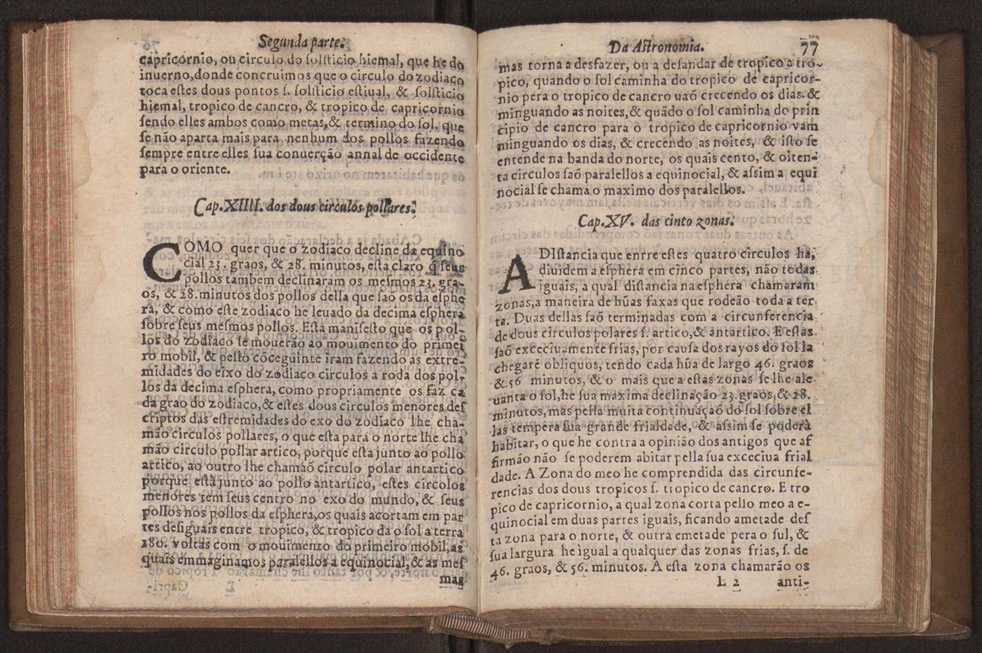 Segunda parte.
capricornio, ou circulo do solsticio hiemal, que he do
inuerno, donde concruimos que o circulo do zodiaco
toca estes dous pontos s. solsticio estiual, & solsticio
hiemal, tropico de cancro, & tropico de capricornio
sendo elles ambos como metas, & termino do sol, que
se não aparta mais para nenhum dos pollos fazendo
sempre entre elles sua conuerção annal de occidente
para o oriente.
Cap. XIIII. dos dous circulos pollares.
COMO quer que o zodiaco decline da equino
cial 23. graos, & 28. minutos, esta claro q̃ seus
pollos tambem declinaram os mesmos 23. gra-
os, & 28. minutos dos pollos della que saõ os da esphe
ra, & como este zodiaco he leuado da decima esphera
sobre seus mesmos pollos. Está manifesto que os pol-
los do zodiaco se mouerão ao mouimento do primei
ro mobil, & pello cõceguinte iram fazendo as extre-
midades do eixo do zodiaco circulos a roda dos pol-
los da decima esphera, como propriamente os faz ca
da grao do zodiaco, & estes dous circulos menores def
criptos das estremidades do exo do zodiaco lhe cha-
mão circulos pollares, o que esta para o norte lhe chá
mão circulo pollar artico, porque está junto ao pollo
artico, ao outro lhe chamaõ circulo polar antartico
porque está junto ao pollo antartico, estes circolos
menores tem seus centro no exo do mundo, & seus
pollos nos pollos da esphera, os quais acortam em par
tes desiguais entre tropico, & tropico da o sol a terra
180. voltas com o mouimento do primeiro mobil, as
quais emmaginamos paralellos a equinocial, & as mes
mas
Da Astronomia. 77
mas torna a desfazer, ou a desandar de tropico a tro-
pico, quando o sol caminha do tropico de capricor-
nio pera o tropico de cancro uaõ crecendo os dias. &
minguando as noites, & quãdo o sol caminha do prin
cipio de cancro para o tropico de capricornio vam
minguando os dias, & crecendo as noites, & isto se
entende na banda do norte, os quais cento, & oiten-
ta circulos saõ paralellos a equinocial, & assim a equi
nocial se chama o maximo dos paralellos.
Cap. XV. das cinto zonas.
A DIstancia que entre estes quatro circulos ha,
diuidem a esphera em cinco partes, não todas
iguais, a qual distancia na esphera chamaram
zonas, a maneira de hũas faxas que rodeão toda a ter
ra. Duas dellas saõ terminadas com a circunferencia
de dous circulos polares s. artico, & antartico. E estas
saõ exceciuamente frias, por causa dos rayos do sol la
chegarẽ obliquos, tendo cada hũa de largo 46. graos
& 56 minutos, & o mais que a estas zonas se lhe ale
uanta o sol, he sua maxima declinação 23. graos, & 28.
minutos, mas pella muita continuaçaõ do sol sobre el
las tempera sua grande frialdade, & assim se poderá
habitar, o que he contra a opinião dos antigos que af
firmão não se poderem abitar pella sua exceciua frial
dade. A Zona do meo he comprendida das circunfe-
rencias dos dous tropicos s. tropico de cancro. E tro
pico de capricornio, a qual zona corta pello meo a e-
quinocial em duas partes iguais, ficando ametade des
ta zona para o norte, & outra emetade pera o sul, &
sua largura he igual a qualquer das zonas frias, s. de
46. graos, & 56. minutos. A esta zona chamarão os
L 2 anti-